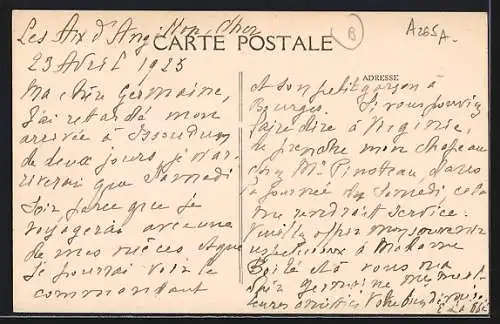 Les Aix d'Angillon, Cher
CARTE POSTALE
B
A265A.
23 Avril 1925
Ma chère Germaine,
J'ai retardé mon
arrivée à Issoudun
de deux jours, je n'ar-
riverai que Samedi
Soir parce que je
voyagerai avec une
de mes nièces et que
je pourrai voir le
commandant
ADRESSE
et son petit garçon à
Bourges. Si vous pouviez
faire dire à Virginie,
de prendre mon chapeau
chez Mme Pinoteau, dans
la journée de Samedi, cela
me rendrait service.
Veuillez offrir mon souvenir
respectueux à Madame
et à vous ma
chère germaine mes meil-
leures amitiés Votre